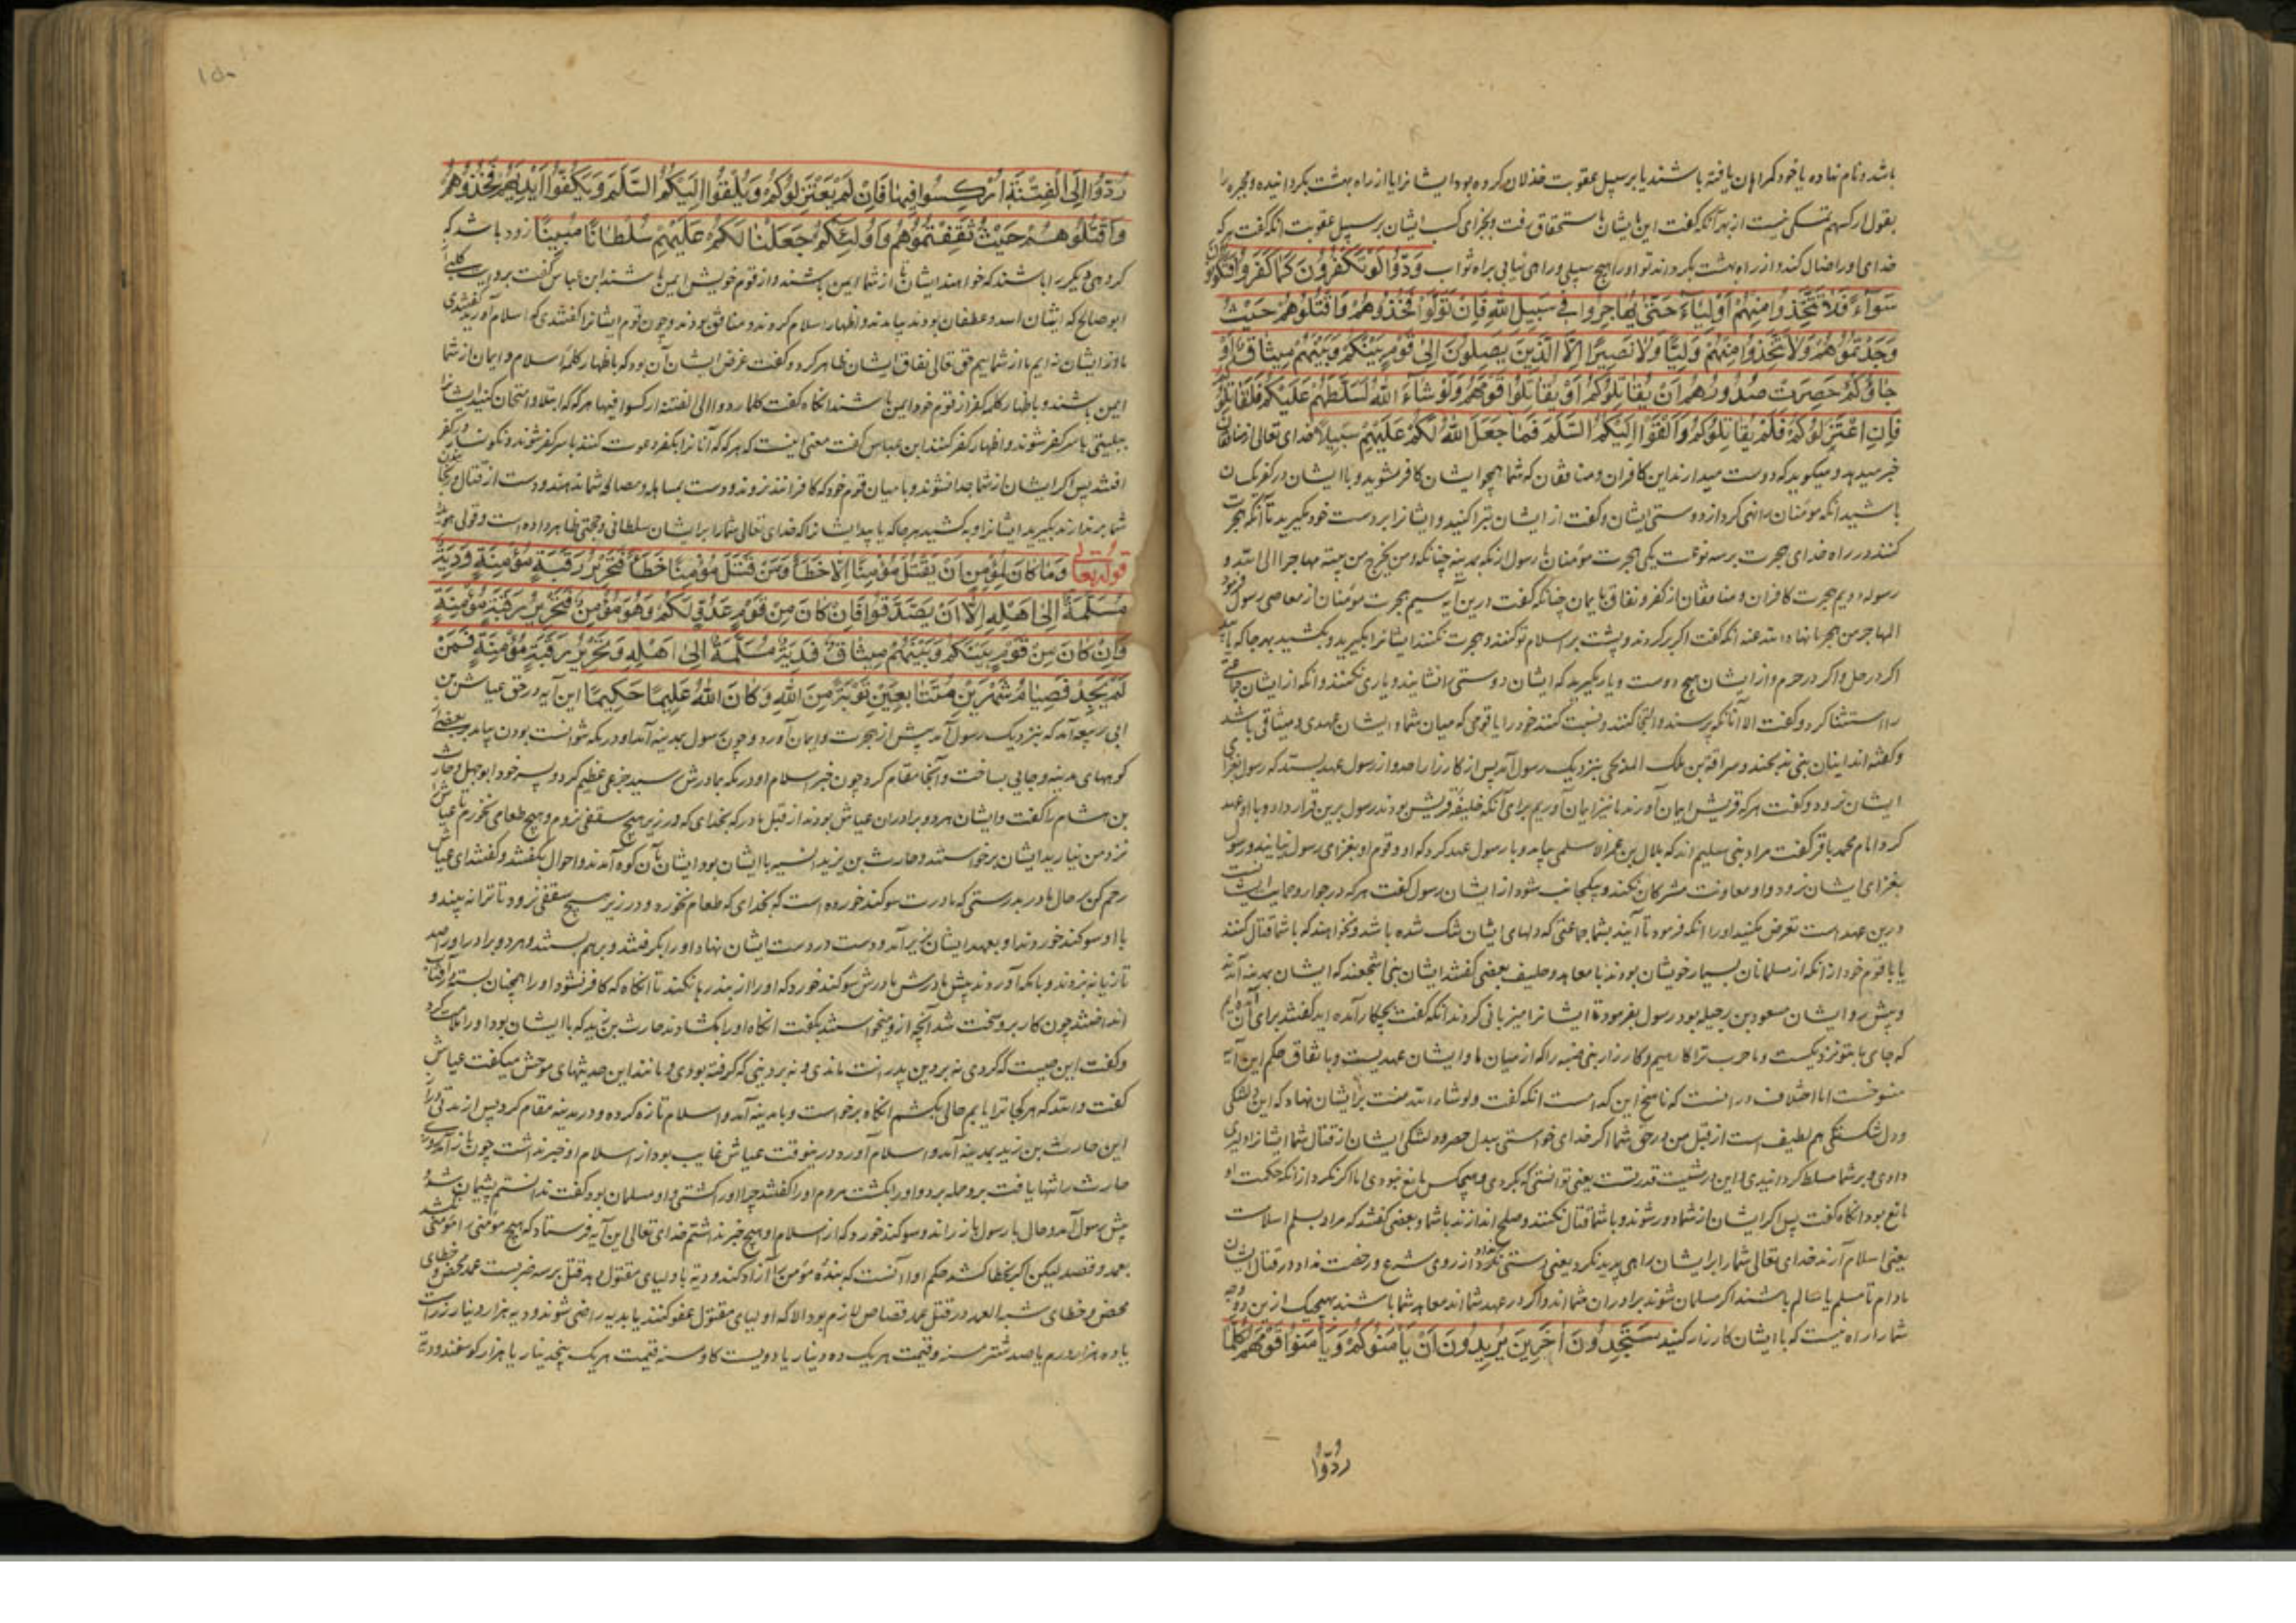 باشد و نام نهاده یا خود گمراهان یافته باشند یا بر سبیل عقوبت خذلان کرده بود ایشانرا یا از راه بهشت بگردانیده و مجبره را
بقول ارکسهم تمسکی نیست از بهر آنکه گفت این بایشان باستحقاق رفت و بجزای کسب ایشان بر سبیل عقوبت آنگه گفت هر که
خدای او را ضال کند و از راه بهشت بگرداند تو او را هیچ سبیلی و راهی نیابی براه ثواب وَدُّوا لَوْ تَكْفُرُونَ كَمَا كَفَرُوا فَتَكُونُونَ
سَوَاءً فَلَا تَتَّخِذُوا مِنْهُمْ أَوْلِيَاءَ حَتَّى يُهَاجِرُوا فِي سَبِيلِ اللَّهِ فَإِنْ تَوَلَّوْا فَخُذُوهُمْ وَاقْتُلُوهُمْ حَيْثُ
وَجَدْتُمُوهُمْ وَلَا تَتَّخِذُوا مِنْهُمْ وَلِيًّا وَلَا نَصِيرًا إِلَّا الَّذِينَ يَصِلُونَ إِلَى قَوْمٍ بَيْنَكُمْ وَبَيْنَهُمْ مِيثَاقٌ أَوْ
جَاؤُكُمْ حَصِرَتْ صُدُورُهُمْ أَنْ يُقَاتِلُوكُمْ أَوْ يُقَاتِلُوا قَوْمَهُمْ وَلَوْ شَاءَ اللَّهُ لَسَلَّطَهُمْ عَلَيْكُمْ فَلَقَاتَلُوكُمْ
فَإِنِ اعْتَزَلُوكُمْ فَلَمْ يُقَاتِلُوكُمْ وَأَلْقَوْا إِلَيْكُمُ السَّلَمَ فَمَا جَعَلَ اللَّهُ لَكُمْ عَلَيْهِمْ سَبِيلًا خدای تعالی از منافقان
خبر میدهد و میگوید که دوست میدارند این کافران و منافقان که شما همچو ایشان کافر شوید و با ایشان در کفر یکسان
باشید آنگه مؤمنان را نهی کرد از دوستی ایشان و گفت از ایشان تبرا کنید و ایشانرا بر دست خود مگیرید تا آنگه هجرت
کنند در راه خدای هجرت بر سه نوعست یکی هجرت مؤمنان با رسول از مکه بمدینه چنانکه و من یخرج من بیته مهاجرا الی الله و
رسوله دویم هجرت کافران و منافقان از کفر و نفاق بایمان چنانکه گفت درین آیه سیم هجرت مؤمنان از معاصی رسول فرمود
المهاجر من هجر ما نهاه الله عنه آنگه گفت اگر برگردند و پشت بر اسلام تو کنند و هجرت نکنند ایشانرا بگیرید و بکشید هر جا که یابید
اگر در حل و اگر در حرم و از ایشان هیچ دوست و یار مگیرید که ایشان دوستی را نشایند و یاری نکنند آنگه از ایشان جماعتی
را استثنا کرد و گفت الا آنانکه پرسند و التجا کنند و نسبت کنند خود را با قومی که میان شما و ایشان عهدی و میثاقی باشد
و گفته‌اند اینان بنی مدلجند و سراقة بن ملک المدلجی بنزدیک رسول آمد پس از کارزار احد و از رسول عهد بستد که رسول بغزای
ایشان نرود و گفت هر که قریش ایمان آورند ما نیز ایمان آوریم برای آنکه حلیفه قریش بودند رسول برین قرار داد و با او عهد
کرد امام محمد باقر گفت مراد بنی سلیم اند که بلال بن عمر الاسلمی بیامد و با رسول عهد کرد که او و قوم او بغزای رسول نیایند و رسول
بغزای ایشان نرود و او معاونت مشرکان نکند و بیکجانب شود از ایشان رسول گفت هر که در جوار و حمایت ایشانست
درین عهد است تعرض مکنید او را آنگه فرمود تا آیند بشما جماعتی که دلهای ایشان تنگ شده باشد و نخواهند که با شما قتال کنند
یا با قوم خود از آنکه از مسلمانان بسیار خویشان بودند یا معاهد و حلیف بعضی گفتند ایشان بنی اشجعند که ایشان بمدینه آمدند
و پیش رو ایشان مسعود بن رحیله بود رسول بفرمود تا ایشانرا میزبانی کردند آنگه گفت بچه کار آمده اید گفتند برای آن آمده ایم
که جای ما بتو نزدیکست و ما حرب ترا کارهیم و کارزار بنی ضمره را که از میان ما و ایشان عهدیست و باتفاق حکم این آیه
منسوخست اما اختلاف در آنست که ناسخ این کدامست آنگه گفت و لو شاء الله منت بر ایشان نهاد که این دلتنگی
و دل شکستگی هم لطیف است از قبل من در حق شما اگر خدای خواستی بدل حصر و دلتنگی ایشان از قتال شما ایشانرا دلیری
دادی و بر شما مسلط گردانیدی و این در مشیت قدرتست یعنی توانستی که بکردی و هیچکس مانع نبودی اما اگر نکرد از آنکه حکمت او
مانع بود آنگاه گفت پس اگر ایشان از شما دور شوند و با شما قتال نکنند و صلح اندازند با شما و بعضی گفتند که مراد بسلم اسلامست
یعنی اسلام آرند خدای تعالی شما را بر ایشان راهی پدید نکرد یعنی رستی نکرد از روی شرع و رخصت نداد در قتال ایشان
مادام تا مسلم یا سالم باشند اگر مسلمان شوند برادران شما اند و اگر در عهد شما اند معاهد شما باشند بهیچیک ازین دو وجه
شما را راه نیست که با ایشان کارزار کنید سَتَجِدُونَ آخَرِينَ يُرِيدُونَ أَنْ يَأْمَنُوكُمْ وَيَأْمَنُوا قَوْمَهُمْ كُلَّمَا
ردّوا
۱۵۰
رُدُّوا إِلَى الْفِتْنَةِ أُرْكِسُوا فِيهَا فَإِنْ لَمْ يَعْتَزِلُوكُمْ وَيُلْقُوا إِلَيْكُمُ السَّلَمَ وَيَكُفُّوا أَيْدِيَهُمْ فَخُذُوهُمْ
وَاقْتُلُوهُمْ حَيْثُ ثَقِفْتُمُوهُمْ وَأُولَئِكُمْ جَعَلْنَا لَكُمْ عَلَيْهِمْ سُلْطَانًا مُبِينًا زود باشد که
گروهی دیگر را باشند که خواهند ایشان تا از شما ایمن باشند و از قوم خویش ایمن باشند ابن عباس گفت بروایت کلبی از
ابو صالح که ایشان اسد و غطفان بودند بیامدند و اظهار اسلام کردند و منافق بودند و چون قوم ایشانرا گفتندی که اسلام آوردید گفتندی
ما نزد ایشان نه ایم ما از شماییم حق تعالی نفاق ایشان ظاهر کرد و گفت غرض ایشان آن بود که باظهار کلمه اسلام و ایمان از شما
ایمن باشند و باظهار کلمه کفر از قوم خود ایمن باشند آنگاه گفت کلما ردوا الی الفتنة ارکسوا فیها هر گه که ابتلا و امتحان کنند ایشانرا
ببلیتی با سر کفر شوند و اظهار کفر کنند ابن عباس گفت معنی اینست که هر گه که آنانرا بکفر دعوت کنند با سر کفر شوند و نگونسار در کفر
افتند پس اگر ایشان از شما جدا نشوند و با میان قوم خود که کافرانند نروند و دست بمساهله و مصالحه شما ندهند و دست از قتال و رنجانیدن
شما برندارند بگیرید ایشانرا و بکشید هر جا که یابید ایشانرا که خدای تعالی شما را بر ایشان سلطانی و حجتی ظاهر داده است و قولی
قوله تعالی وَمَا كَانَ لِمُؤْمِنٍ أَنْ يَقْتُلَ مُؤْمِنًا إِلَّا خَطَأً وَمَنْ قَتَلَ مُؤْمِنًا خَطَأً فَتَحْرِيرُ رَقَبَةٍ مُؤْمِنَةٍ وَدِيَةٌ
مُسَلَّمَةٌ إِلَى أَهْلِهِ إِلَّا أَنْ يَصَّدَّقُوا فَإِنْ كَانَ مِنْ قَوْمٍ عَدُوٍّ لَكُمْ وَهُوَ مُؤْمِنٌ فَتَحْرِيرُ رَقَبَةٍ مُؤْمِنَةٍ
وَإِنْ كَانَ مِنْ قَوْمٍ بَيْنَكُمْ وَبَيْنَهُمْ مِيثَاقٌ فَدِيَةٌ مُسَلَّمَةٌ إِلَى أَهْلِهِ وَتَحْرِيرُ رَقَبَةٍ مُؤْمِنَةٍ فَمَنْ
لَمْ يَجِدْ فَصِيَامُ شَهْرَيْنِ مُتَتَابِعَيْنِ تَوْبَةً مِنَ اللَّهِ وَكَانَ اللَّهُ عَلِيمًا حَكِيمًا این آیه در حق عیاش بن
ابی ربیعه آمد که بنزدیک رسول آمد پیش از هجرت و ایمان آورد و چون رسول بمدینه آمد او در مکه نتوانست بودن بیامد و ببعضی
کوههای مدینه و جایی بساخت و آنجا مقام کرد چون خبر اسلام او در مکه بمادرش رسید جزعی عظیم کرد و پسر خود ابو جهل و حارث
بن هشام را گفت و ایشان هر دو برادران عیاش بودند از قبل مادر که بخدای که در زیر هیچ سقفی نروم و هیچ طعامی نخورم تا عیاش را
نزد من نیارید ایشان برخواستند و حارث بن یزید انسیه با ایشان بود ایشان بآن کوه آمدند و احوال بگفتند و گفتند ای عیاش
رحم کن بر حال مادر بدرستی که مادرت سوگند خورده است که بخدای که طعام نخورد و در زیر هیچ سقفی نرود تا ترا نه بیند و
با او سوگند خوردند او بعهد ایشان بزیر آمد و دست در دست ایشان نهاد او را بگرفتند و بر هم بستند و هر دو برادر او را صد
تازیانه بزدند و بمکه آوردند پیش مادرش مادرش سوگند خورد که او را از بند رها نکنند تا آنگاه که کافر نشود او را همچنان بسته در آفتاب
انداختند چون کار برو سخت شد آنچه ازو میخواستند بگفت آنگاه او را بگشادند حارث بن یزید که با ایشان بود او را ملامت کرد
و گفت این چیست که کردی نه بر دین پدرانت ماندی و نه بر دینی که گرفته بودی و مانند این حدیثهای موحش میگفت عیاش
گفت و الله که هر کجا ترا یابم خالی بکشم آنگاه برخواست و بمدینه آمد و اسلام تازه کرده و در مدینه مقام کرد پس از مدتی
این حارث بن زید بمدینه آمد و اسلام آورد و درینوقت عیاش غایب بود از اسلام او خبر نداشت چون باز آمد
حارث را تنها یافت برو حمله برد و او را بکشت مردم او را گفتند چرا او را کشتی و او مسلمان بود گفت ندانستم پشیمان شد و
پیش رسول آمد و حال با رسول باز راند و سوگند خورد که از اسلام او هیچ خبر نداشتم خدای تعالی این آیه فرستاد که هیچ مؤمنی را مؤمنی نکشد
بعمد و قصد لیکن اگر بخطا کشد حکم او آنست که بنده مؤمن را آزاد کند و دیه باولیای مقتول دهد قتل بر سه ضربست عمد محض و خطای
محض و خطای شبه العمد در قتل عمد قصاص لازم بود الا که اولیای مقتول عفو کنند یا بدیه راضی شوند و دیه هزار دینار زر است
یا ده هزار درم یا صد شتر مسنه و قیمت هر یک ده دینار یا دویست گاو مسنه قیمت هر یک پنجدینار یا هزار گوسفند و دیه